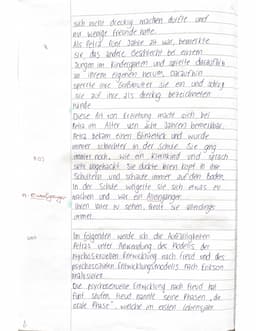 sich nicht dreckig machen durfte und
nur wenige Freunde hatte.
Als Petra fünf Jahre alt war, bemerkte
sie, das andere Geschlecht bei einem
Jungen im Kindergarten und spielte daraufhin
an ihrem eigenen herum. Daraufhin
sperrte ihre Großmutter sie ein und schlug
sie auf ihre als dreckig bezeichneten
Hände
Diese Art von Erziehung macht sich bei
Petra im Alter von acht Jahren bemerkbar.
Petra bekam einen und wurde
immer schlechter in der Schule. Sie ging
immer noch, wie ein Kleinkind und sprach
sich abgehackt. Sie duckte ihren Kopf in ihre
Schultern und schaute immer auf den Boden.
In der Schule weigerte sie sich etwas zu
machen und war ein Alleingänger.
Ihren Vater zu sehen, freut sie allerdings
immer.
Im folgenden werde ich die Auffälligkeiten
Petras unter Anwendung des Modells der
psychosexuellen Entwicklung nach Freud und des
psychosozialen Entwicklungsmodells nach Erikson
analysieren
Die psychosexuelle Entwicklung nach Freud hat
fünf Stufen. Freud nannte seine Phasen, „die
orale Phase", welche im ersten Lebensjahr